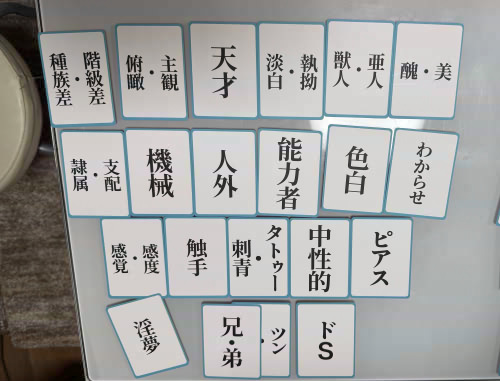 階級差・種族差
主観・俯瞰
天才
執拗・淡白
亜人・獣人
美・醜
支配・隷属
機械
人外
能力者
色白
わからせ
感度・感覚
触手
タトゥー・刺青
中性的
ピアス
淫夢
兄・弟
ツン・
ドS